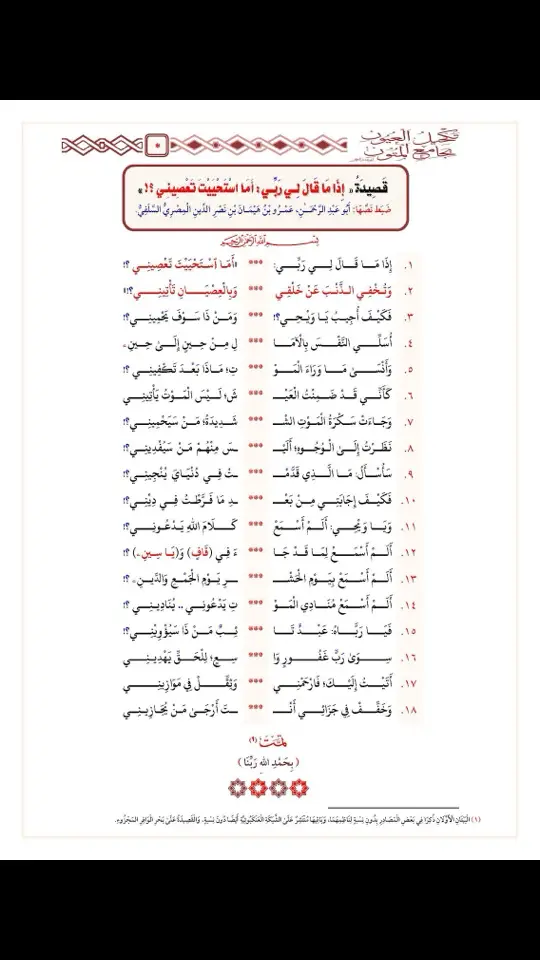 تكحيل العيون
بجامع المتون
قَصِيدَةُ « إِذَا مَا قَالَ لِي رَبِّي : أَمَا اسْتَحْيَيْتَ تَعْصِينِي ؟! »
ضَبَطَ نَصَّهَا: أَبُو عَبْدِ الرَّحْمَـٰنِ، عَمْرُو بْنُ هَيْمَانَ بْنِ نَصْرِ الدِّينِ الْمِصْرِيُّ السَّلَفِيُّ.
بِسْمِ اللَّهِ الرَّحْمَنِ الرَّحِيمِ
١. إِذَا مَا قَالَ لِي رَبِّي: *** «أَمَا اَسْتَحْيَيْتَ تَعْصِينِي ؟!
٢. وَتُخْفِي الذَّنْبَ عَنْ خَلْقِي *** وَبِالْعِصْيَانِ تَأْتِينِي ؟!»
٣. فَكَيْفَ أُجِيبُ يَا وَيْحِي؟! *** وَمَنْ ذَا سَوْفَ يَحْمِينِي؟!
٤. أُسَلِّي النَّفْسَ بِالْآمَا *** لِ مِنْ حِينٍ إِلَىٰ حِينِ،
٥. وَأَنْسَىٰ مَا وَرَاءَ الْمَوْ *** تِ؛ مَاذَا بَعْدَ تَكْفِينِي ؟!
٦. كَأَنِّي قَدْ ضَمِنْتُ الْعَيْـ *** شَ؛ لَيْسَ الْمَوْتُ يَأْتِينِي
٧. وَجَاءَتْ سَكْرَةُ الْمَوْتِ الشْـ *** شَدِيدَةُ؛ مَنْ سَيَحْمِينِي؟!
٨. نَظَرْتُ إِلَىٰ الْوُجُوهِ؛ أَلَيْـ *** سَ مِنْهُمْ مَنْ سَيَفْدِينِي؟!
٩. سَأُسْأَلُ: مَا الَّذِي قَدَّمْـ *** تُ فِي دُنْيَايَ يُنْجِينِي؟!
١٠. فَكَيْفَ إِجَابَتِي مِنْ بَعْـ *** دِ مَا فَرَّطْتُ فِي دِيْنِي؟!
١١. وَيَا وَيْحِي: أَلَمْ أَسْمَعْ *** كَلَامَ اللهِ يَدْعُونِي؟!
١٢. أَلَمْ أَسْمَعْ لِمَا قَدْ جَا *** ءَ فِي (قَافٍ) وَ(يَا سِينِ) ؟!
١٣. أَلَمْ أَسْمَعْ بِيَوْمِ الْحَشْـ *** رِ يَوْمِ الْجَمْعِ وَالدِّينِ، ؟!
١٤. أَلَمْ أَسْمَعْ مُنَادِي الْمَوْ *** تِ يَدْعُونِي .. يُنَادِينِي ؟!
١٥. فَيَا رَبَّاهُ: عَبْدٌ تَا *** ئِبٌ مَنْ ذَا سَيُؤْوِيْنِي؟!
١٦. سِوَىٰ رَبٍّ غَفُورٍ وَا *** سِعٍ؛ لِلْحَقِّ يَهْدِينِي
١٧. أَتَيْتُ إِلَيْكَ؛ فَارْحَمْنِي *** وَثَقِّلْ فِي مَوَازِينِي
١٨. وَخَفِّفْ فِي جَزَائِي أَنْـ *** تَ أَرْجَىٰ مَنْ يُجَازِينِي
تَمَّتْ (١)
( بِحَمْدِ اللهِ رَبِّنَا )
(١) الْبَيْتَانِ الْأَوَّلَانِ ذُكِرَا فِي بَعْضِ الْمَصَادِرِ بِدُونِ نِسْبَةٍ لِنَاظِمِهِمَا، وَبَاقِيهَا مُنْتَشِرٌ عَلَىٰ الشَّبَكَةِ الْعَنْكَبُوتِيَّةِ أَيْضًا دُونَ نِسْبَةٍ. وَالْقَصِيدَةُ عَلَىٰ بَحْرِ الْوَافِرِ الْمَجْزُوءِ.